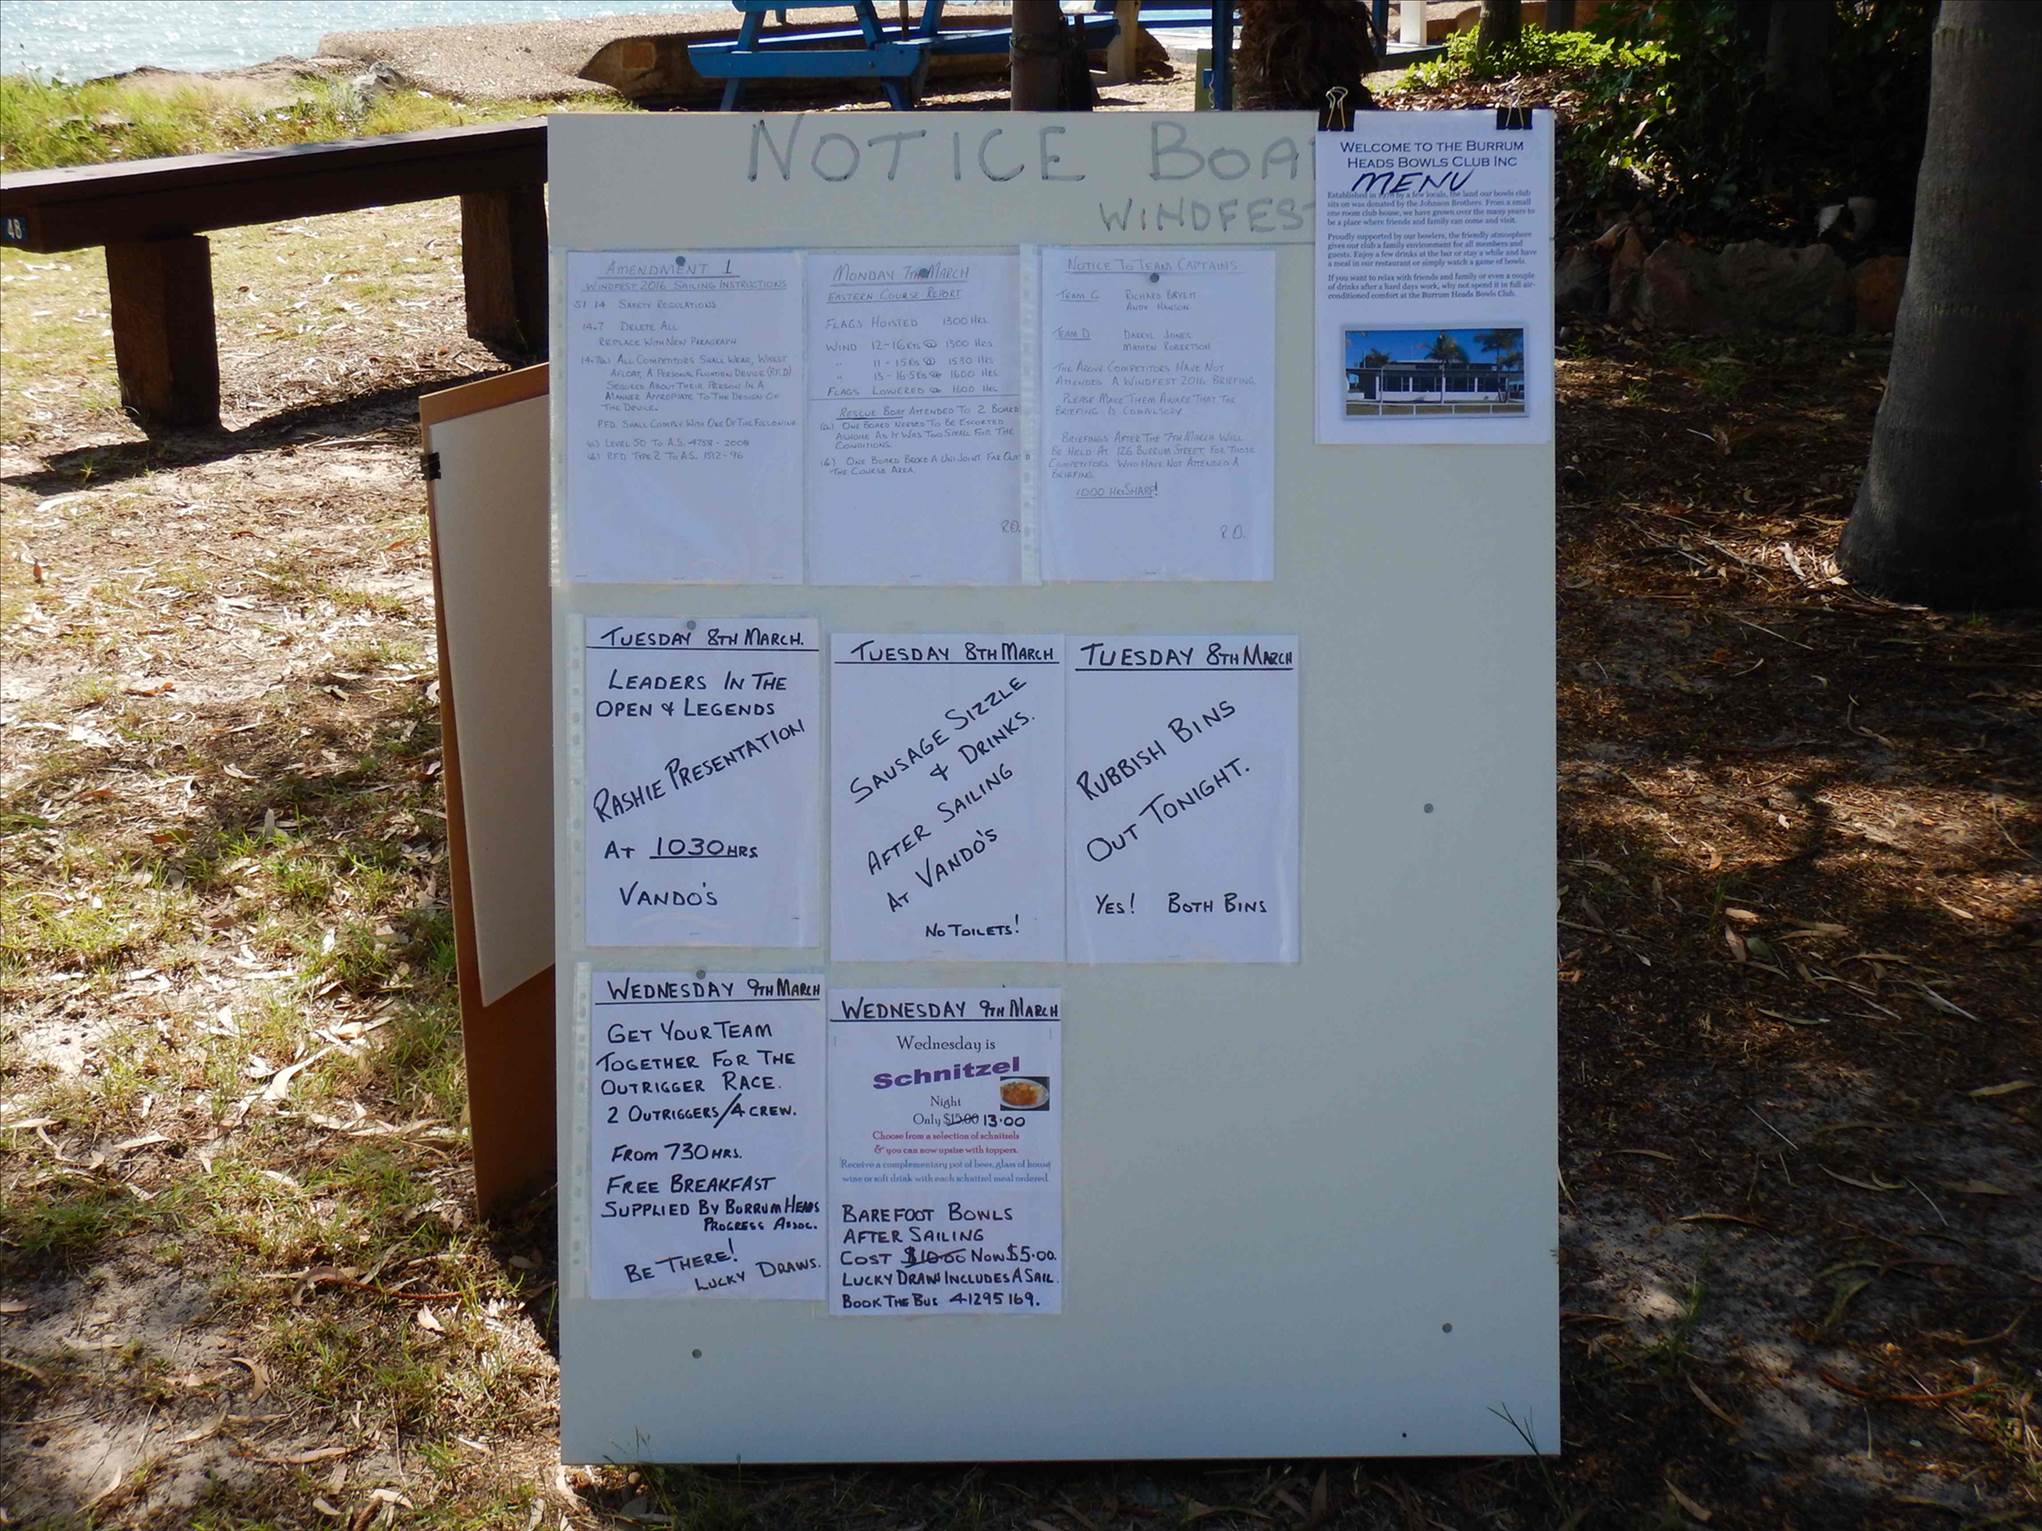 NOTICE BOA
WINDFEST
WELCOME TO THE BURRUM
HEADS BOWLS CLUB INC
MENU
Established in by a few locals, the land our bowls club
sits on was donated by the Johnson Brothers. From a small
one room club house, we have grown over the many years to
be a place where friends and family can come and visit.
Proudly supported by our bowlers, the friendly atmosphere
gives our club a family environment for all members and
guests. Enjoy a few drinks at the bar or stay a while and have
a meal in our restaurant or simply watch a game of bowls.
If you want to relax with friends and family or even a couple
of drinks after a hard days work, why not spend it in full air-
conditioned comfort at the Burrum Heads Bowls Club.
AMENDMENT 1
WINDFEST 2016 SAILING INSTRUCTIONS
SI 14 SAFETY REGULATIONS
14.7 DELETE ALL
REPLACE WITH NEW PARAGRAPH
ALL COMPETITORS SHALL WEAR, WHILST
AFLOAT, A PERSONAL FLOTATION DEVICE (PFD)
SECURED ABOUT THEIR PERSON IN A
MANNER APPROPIATE TO THE DESIGN OF
THE DEVICE.
PFD SHALL COMPLY WITH ONE OF THE FOLLOWING
(a) LEVEL 50 TO A.S. 4758 - 2008
(b) PFD TYPE 2 TO A.S. 1512-96
MONDAY 7TH MARCH
EASTERN COURSE REPORT
FLAGS HOISTED 1300 HRS
WIND 12-16 KTS @ 1300 HRS
" 11-15 KTS @ 1530 HRS
" 13-16.5 KTS @ 1600 HRS
FLAGS LOWERED @ 1600 HRS
RESCUE BOAT ATTENDED TO 2 BOARD
(a) ONE BOARD NEEDED TO BE ESCORTED
ASHORE AS IT WAS TOO SMALL FOR THE
CONDITIONS.
(b) ONE BOARD BROKE A UNI JOINT FAR OUT
THE COURSE AREA.
R.O.
NOTICE TO TEAM CAPTAINS
TEAM C RICHARD BRYETT
ANDY HANSON
TEAM D DARRYL JONES
ROBERTSON
THE ABOVE COMPETITORS HAVE NOT
ATTENDED A WINDFEST 2016 BRIEFING.
PLEASE MAKE THEM AWARE THAT THE
BRIEFING IS COMPULSORY
BRIEFINGS AFTER THE 7TH MARCH WILL
BE HELD AT 126 BURRUM STREET, FOR THOSE
COMPETITORS WHO HAVE NOT ATTENDED A
BRIEFING
1000 HRS SHARP!
R.O.
TUESDAY 8TH MARCH.
LEADERS IN THE
OPEN & LEGENDS
RASHIE PRESENTATION
AT 1030HRS
VANDO'S
TUESDAY 8TH MARCH
SAUSAGE SIZZLE
& DRINKS.
AFTER SAILING
AT VANDO'S
NO TOILETS!
TUESDAY 8TH MARCH
RUBBISH BINS
OUT TONIGHT.
YES! BOTH BINS
WEDNESDAY 9TH MARCH
GET YOUR TEAM
TOGETHER FOR THE
OUTRIGGER RACE.
2 OUTRIGGERS/4 CREW.
FROM 730 HRS.
FREE BREAKFAST
SUPPLIED BY BURRUM HEADS
PROGRESS ASSOC.
BE THERE!
LUCKY DRAWS.
WEDNESDAY 9TH MARCH
Wednesday is
Schnitzel
Night
Only $15.00 13.00
Choose from a selection of schnitzels
& you can now upsize with toppers.
Receive a complementary pot of beer, glass of house
wine or soft drink with each schnitzel meal ordered
BAREFOOT BOWLS
AFTER SAILING
COST $10.00 NOW $5.00.
LUCKY DRAW INCLUDES A SAIL.
BOOK THE BUS 41295169.
48